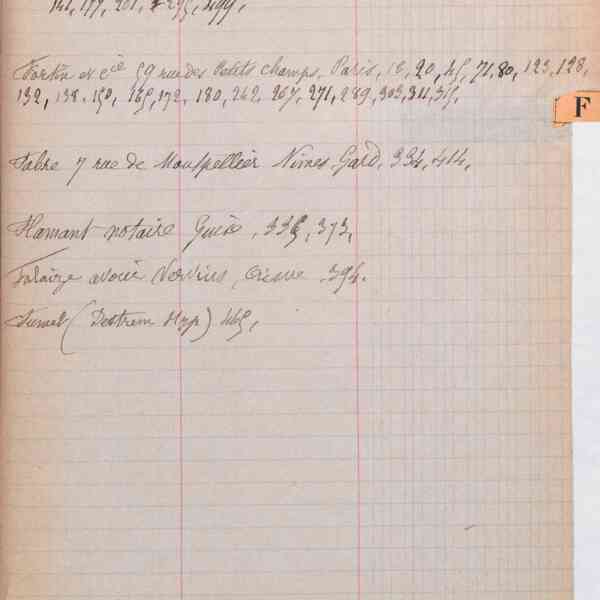 141, 177, 201, 295, 499,
Fortin et Cie 59 rue des Petits Champs, Paris, 18, 20, 45, 71, 80, 123, 128,
132, 138, 150, 165, 172, 180, 262, 267, 271, 289, 303, 311, 315,
F
Fabre 7 rue de Montpellier Nimes, Gard, 334, 414,
Flamant notaire Guise, 335, 373,
Falaize avoué Vervins, Aisne 394.
(Destrem Hyp) 445,